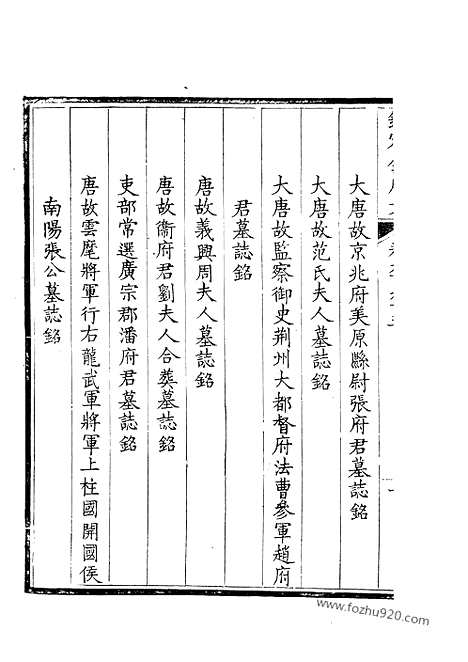 大唐故京兆府美原縣尉張府君墓誌銘
大唐故范氏夫人墓誌銘
大唐故監察御史荆州大都督府法曹參軍趙府
君墓誌銘
唐故義興周夫人墓誌銘
唐故衞府君劉夫人合葬墓誌銘
吏部常選廣宗郡潘府君墓誌銘
唐故雲麾將軍行右龍武軍將軍上柱國開國侯
南陽張公墓誌銘
www.fozhu920.com